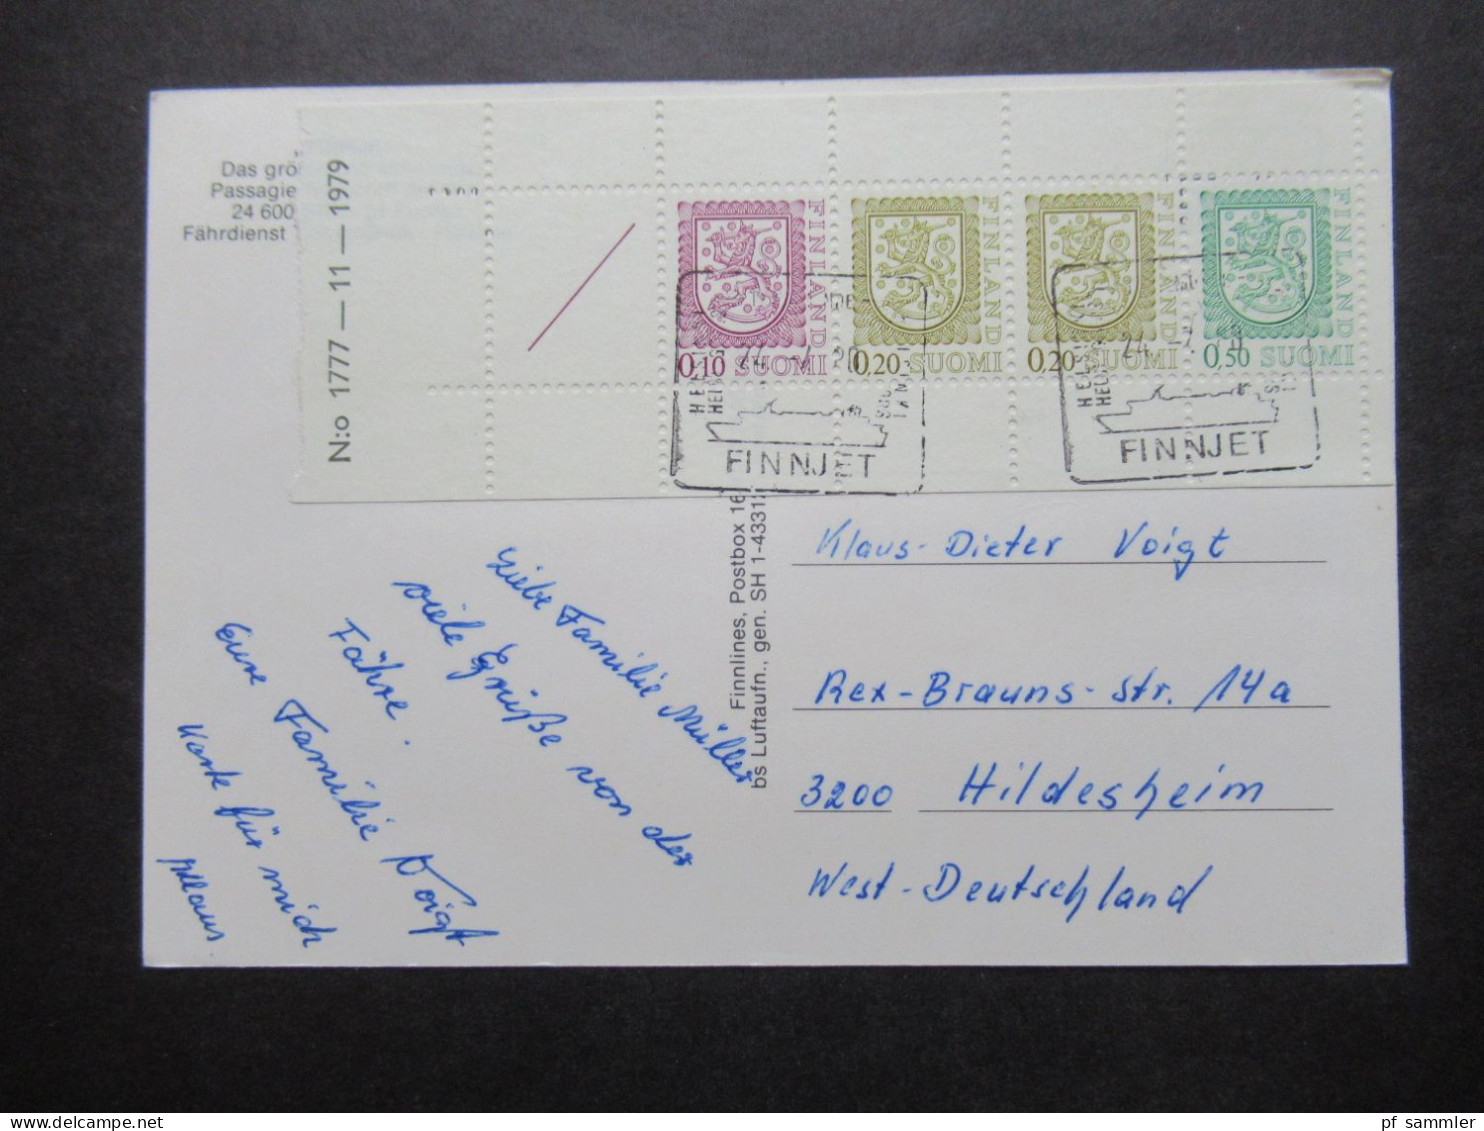 Das grö
Passagie
24 600
Fährdienst
N:o 1777 — 11 — 1979
FINLAND
0,10 SUOMI
FINLAND
0,20 SUOMI
FINLAND
0,20 SUOMI
FINLAND
0,50 SUOMI
FINNJET
FINNJET
Finnlines, Postbox 16
bs Luftaufn., gen. SH 1-4331
Liebe Familie Müller
viele Grüße von der
Fähre.
Eure Familie Voigt
Karte für mich
Klaus
Klaus-Dieter Voigt
Rex-Brauns-Str. 14a
3200 Hildesheim
West-Deutschland
pf sammler